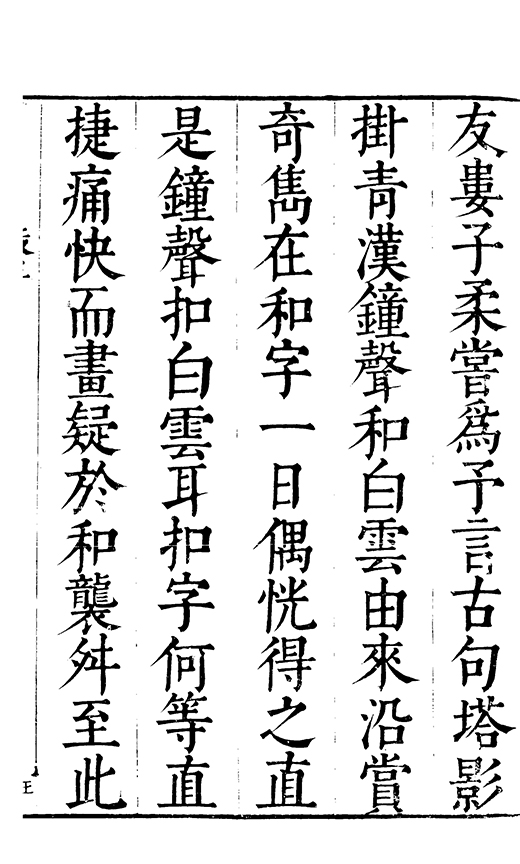 友婁子柔嘗爲予言古句塔影
掛青漢鐘聲和白雲由來沿賞
奇雋在和字一日偶恍得之直
是鐘聲扣白雲耳扣字何等直
捷痛快而畫疑於和襲舛至此